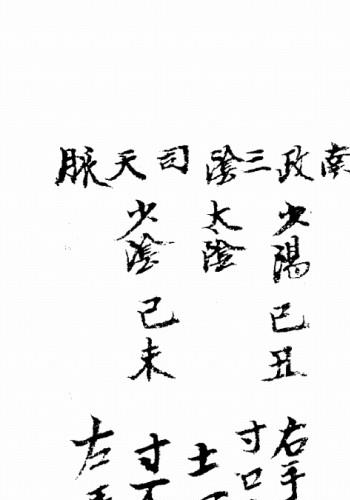 南政三陰司天脈
少陽己丑
太陰
少陰己未
右手
寸口
士
寸不